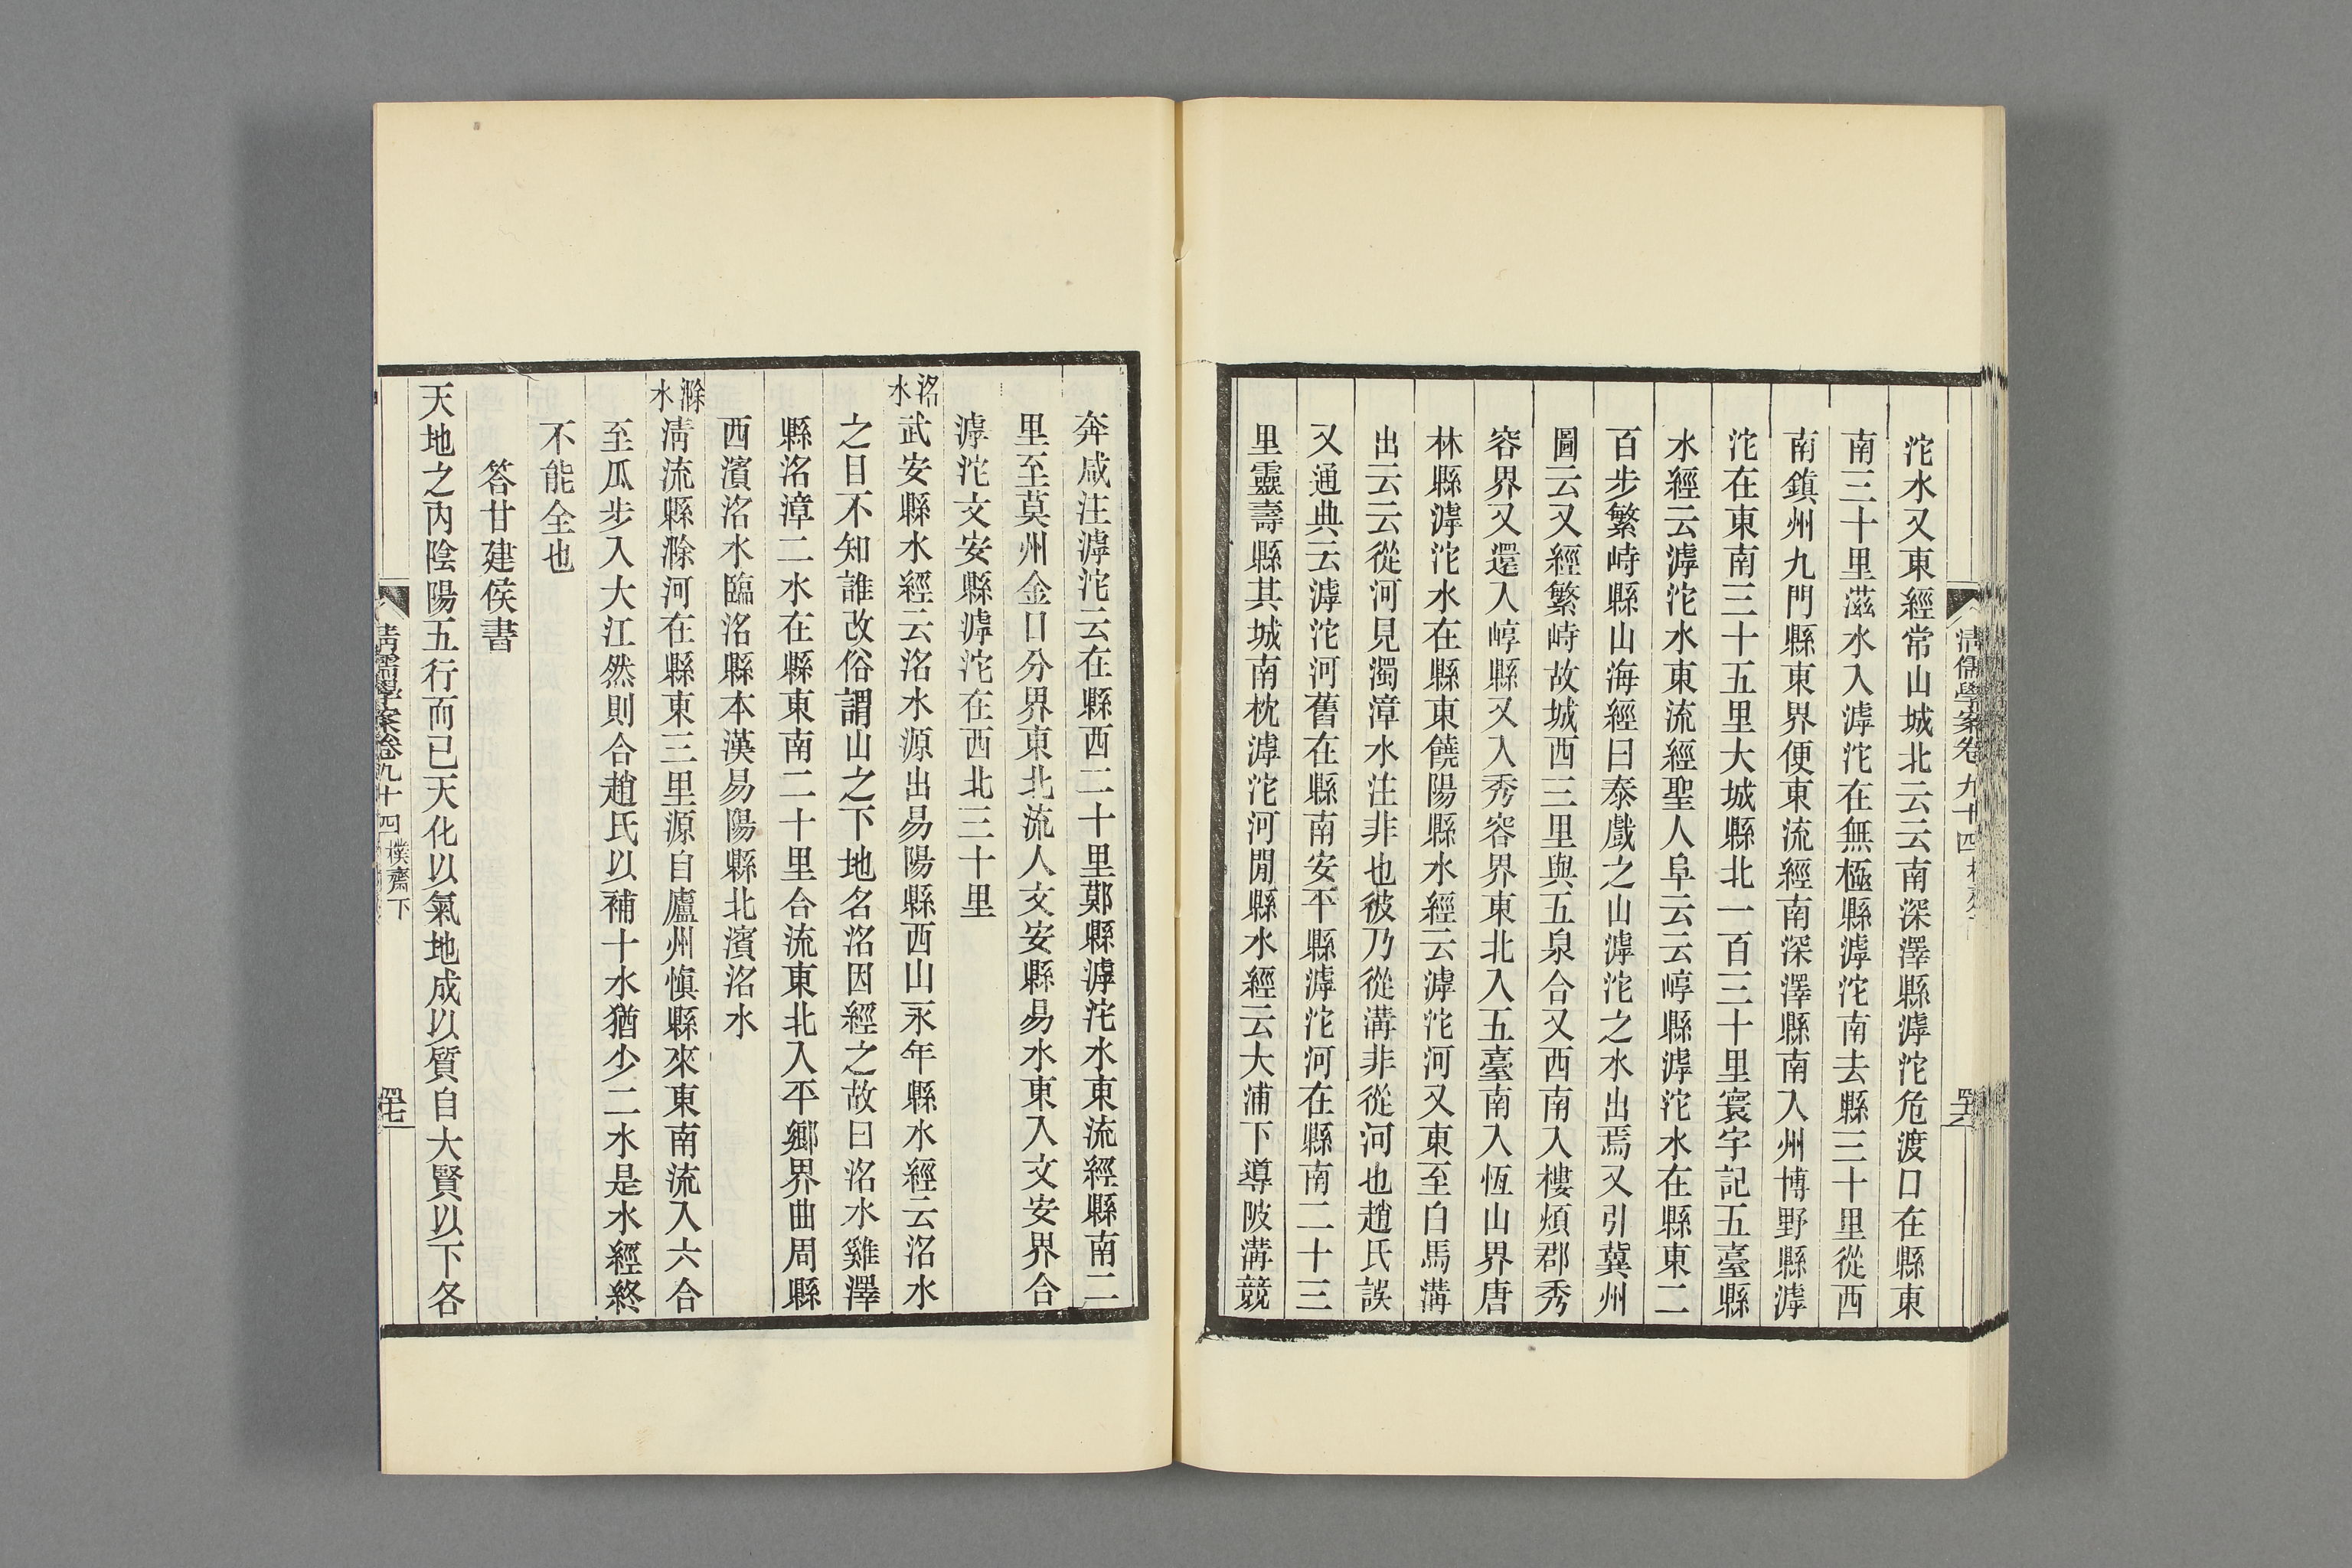 清儒學案卷九十四
沱水又東經常山城北云云南深澤縣滹沱危渡口在縣東
南三十里滋水入滹沱在無極縣滹沱南去縣三十里從西
南鎮州九門縣東界便東流經南深澤縣南入州博野縣滹
沱在東南三十五里大城縣北一百三十里寰宇記五臺縣
水經云滹沱水東流經聖人阜云云崞縣滹沱水在縣東二
百步繁峙縣山海經曰泰戲之山滹沱之水出焉又引冀州
圖云又經繁峙故城西三里與五泉合又西南入樓煩郡秀
容界又還入崞縣又入秀容界東北入五臺南入恆山界唐
林縣滹沱水在縣東饒陽縣水經云滹沱河又東至白馬溝
出云云從河見濁漳水注非也彼乃從溝非從河也趙氏誤
又通典云滹沱河舊在縣南安平縣滹沱河在縣南二十三
里靈壽縣其城南枕滹沱河閒縣水經云大浦下導陂溝競
奔咸注滹沱云在縣西二十里鄚縣滹沱水東流經縣南二
里至莫州金口分界東北流人文安縣易水東入文安界合
滹沱文安縣滹沱在西北三十里
洺水武安縣水經云洺水源出易陽縣西山永年縣水經云洺水
之目不知誰改俗謂山之下地名洺因經之故曰洺水雞澤
縣洺漳二水在縣東南二十里合流東北入平鄉界曲周縣
西濱洺水臨洺縣本漢易陽縣北濱洺水
滁水清流縣滁河在縣東三里源自廬州慎縣來東南流入六合
至瓜步入大江然則合趙氏以補十水猶少二水是水經終
不能全也
答甘建侯書
天地之內陰陽五行而已天化以氣地成以質自大賢以下各
清儒學案卷九十四 樸齋下